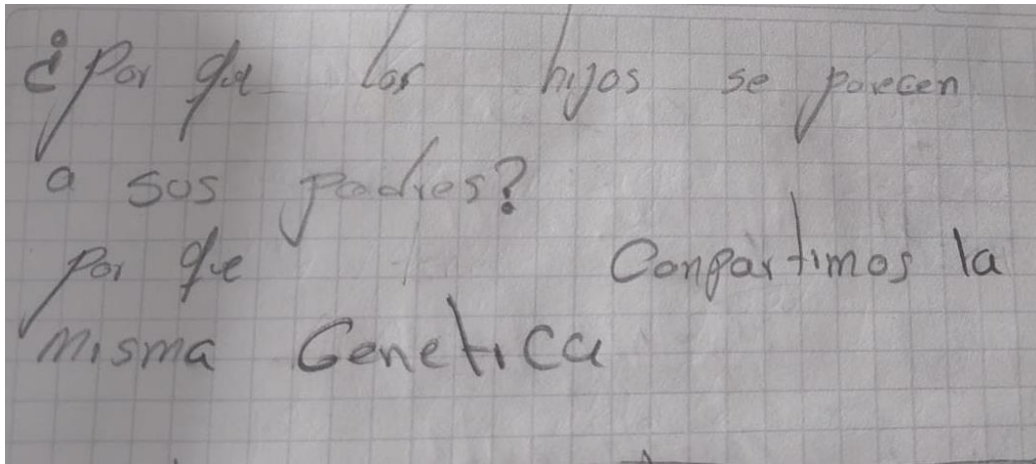 ¿Por que los hijos se parecen
a sos padres?
por que Conpartimos la
misma Genetica